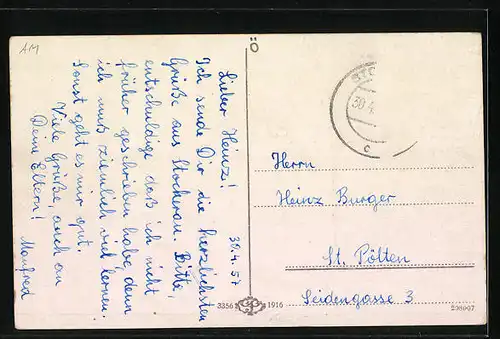 AM
Ö
30.4.57
Lieber Heinz!
Ich sende Dir die herzlichsten
Grüße aus Stockerau. Bitte,
entschuldige daß ich nicht
früher geschrieben habe, denn
ich muß ziemlich viel lernen.
Sonst geht es mir gut.
Viele Grüße, auch an
Deine Eltern!
Manfred
STO
30.4.
c
Herrn
Heinz Burger
St. Pölten
Seidengasse 3
3356 1916